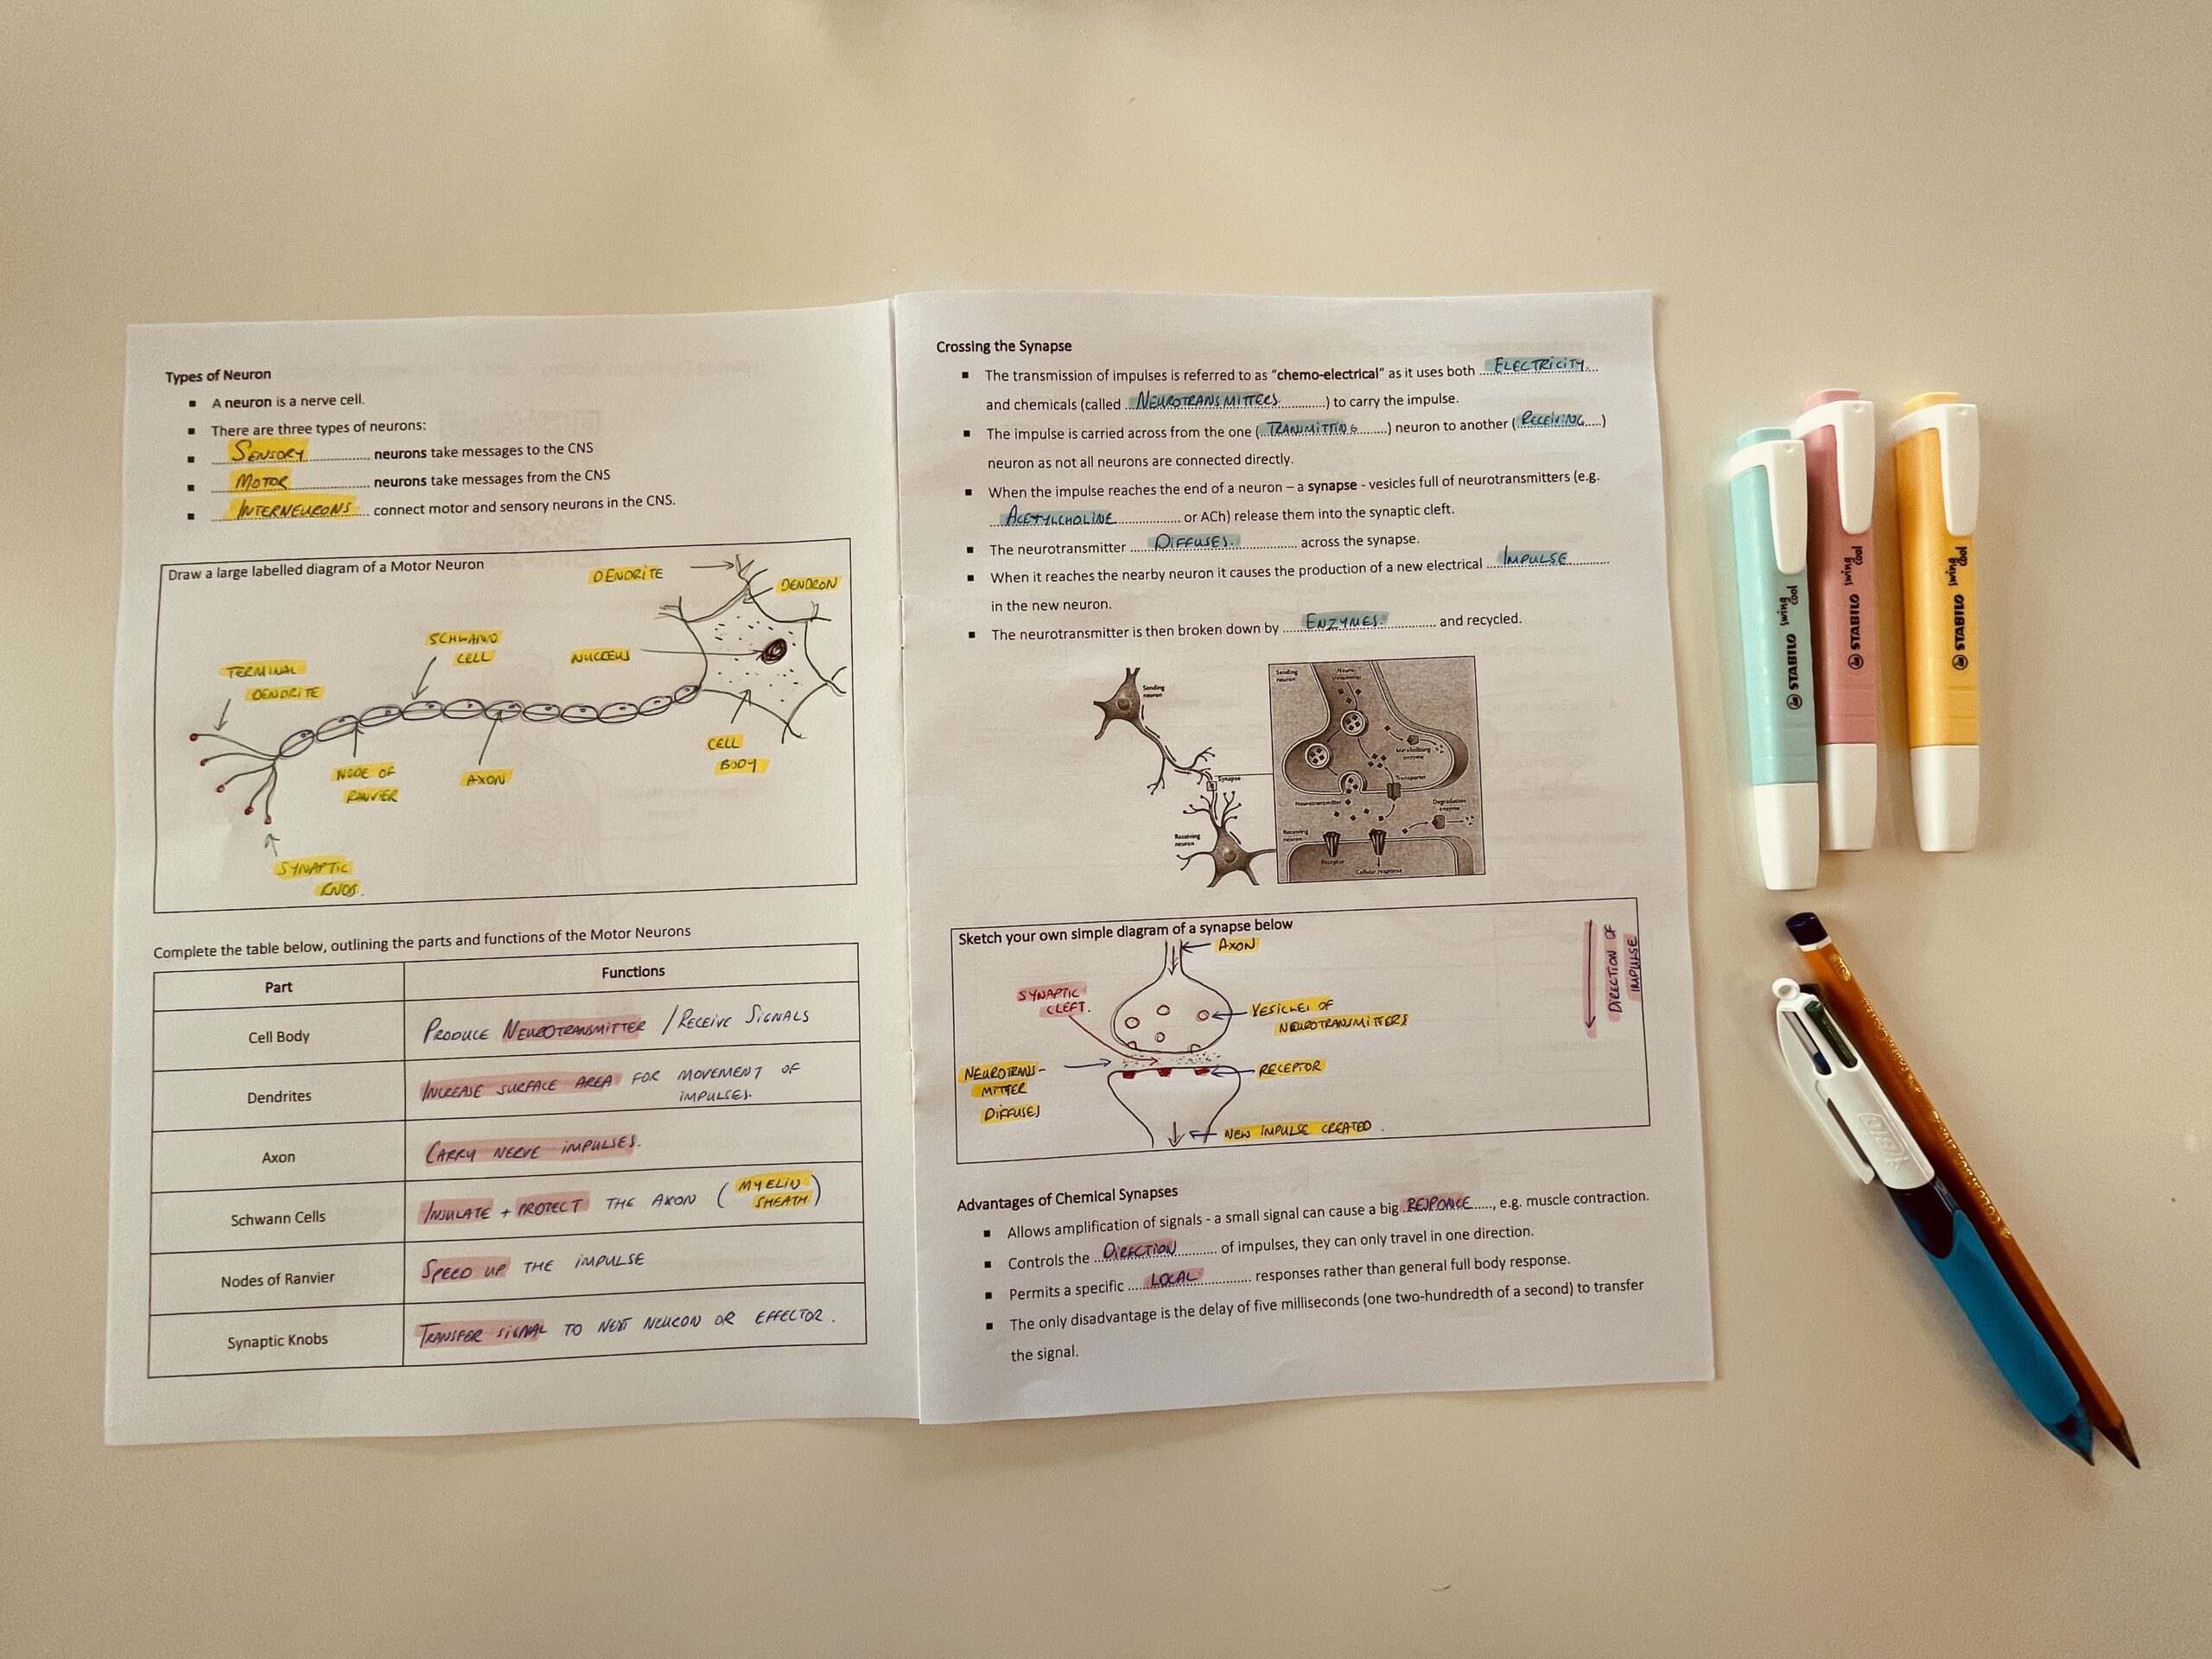 Types of Neuron
▪ A neuron is a nerve cell.
▪ There are three types of neurons:
▪ SENSORY neurons take messages to the CNS
▪ MOTOR neurons take messages from the CNS
▪ INTERNEURONS connect motor and sensory neurons in the CNS.
Draw a large labelled diagram of a Motor Neuron
DENDRITE
DENDRON
SCHWANN
CELL
NUCLEUS
TERMINAL
DENDRITE
CELL
BODY
NODE OF
RANVIER
AXON
SYNAPTIC
KNOB.
Complete the table below, outlining the parts and functions of the Motor Neurons
Part Functions
Cell Body PRODUCE NEUROTRANSMITTER / RECEIVE SIGNALS
Dendrites INCREASE SURFACE AREA FOR MOVEMENT OF
IMPULSES.
Axon CARRY NERVE IMPULSES.
Schwann Cells INSULATE + PROTECT THE AXON (MYELIN
SHEATH)
Nodes of Ranvier SPEED UP THE IMPULSE
Synaptic Knobs TRANSFER SIGNAL TO NEXT NEURON OR EFFECTOR.
Crossing the Synapse
▪ The transmission of impulses is referred to as “chemo-electrical” as it uses both ELECTRICITY
and chemicals (called NEUROTRANSMITTERS) to carry the impulse.
▪ The impulse is carried across from the one (TRANSMITTING) neuron to another (RECEIVING)
neuron as not all neurons are connected directly.
▪ When the impulse reaches the end of a neuron – a synapse - vesicles full of neurotransmitters (e.g.
ACETYLCHOLINE or ACh) release them into the synaptic cleft.
▪ The neurotransmitter DIFFUSES. across the synapse.
▪ When it reaches the nearby neuron it causes the production of a new electrical IMPULSE
in the new neuron.
▪ The neurotransmitter is then broken down by ENZYMES. and recycled.
Sending
neuron
Synapse
Receiving
neuron
Sending
neuron
Neuro-
transmitter
Metabolizing
enzyme
Transporter
Neurotransmitter
Degradation
enzyme
Receiving
neuron
Receptor
Cellular response
Sketch your own simple diagram of a synapse below
AXON
SYNAPTIC
CLEFT.
VESICLES OF
NEUROTRANSMITTERS
NEUROTRANS-
MITTER
DIFFUSES
RECEPTOR
NEW IMPULSE CREATED.
DIRECTION OF
IMPULSE
Advantages of Chemical Synapses
▪ Allows amplification of signals - a small signal can cause a big RESPONCE, e.g. muscle contraction.
▪ Controls the DIRECTION of impulses, they can only travel in one direction.
▪ Permits a specific LOCAL responses rather than general full body response.
▪ The only disadvantage is the delay of five milliseconds (one two-hundredth of a second) to transfer
the signal.
STABILO swing cool
STABILO swing cool
STABILO swing cool